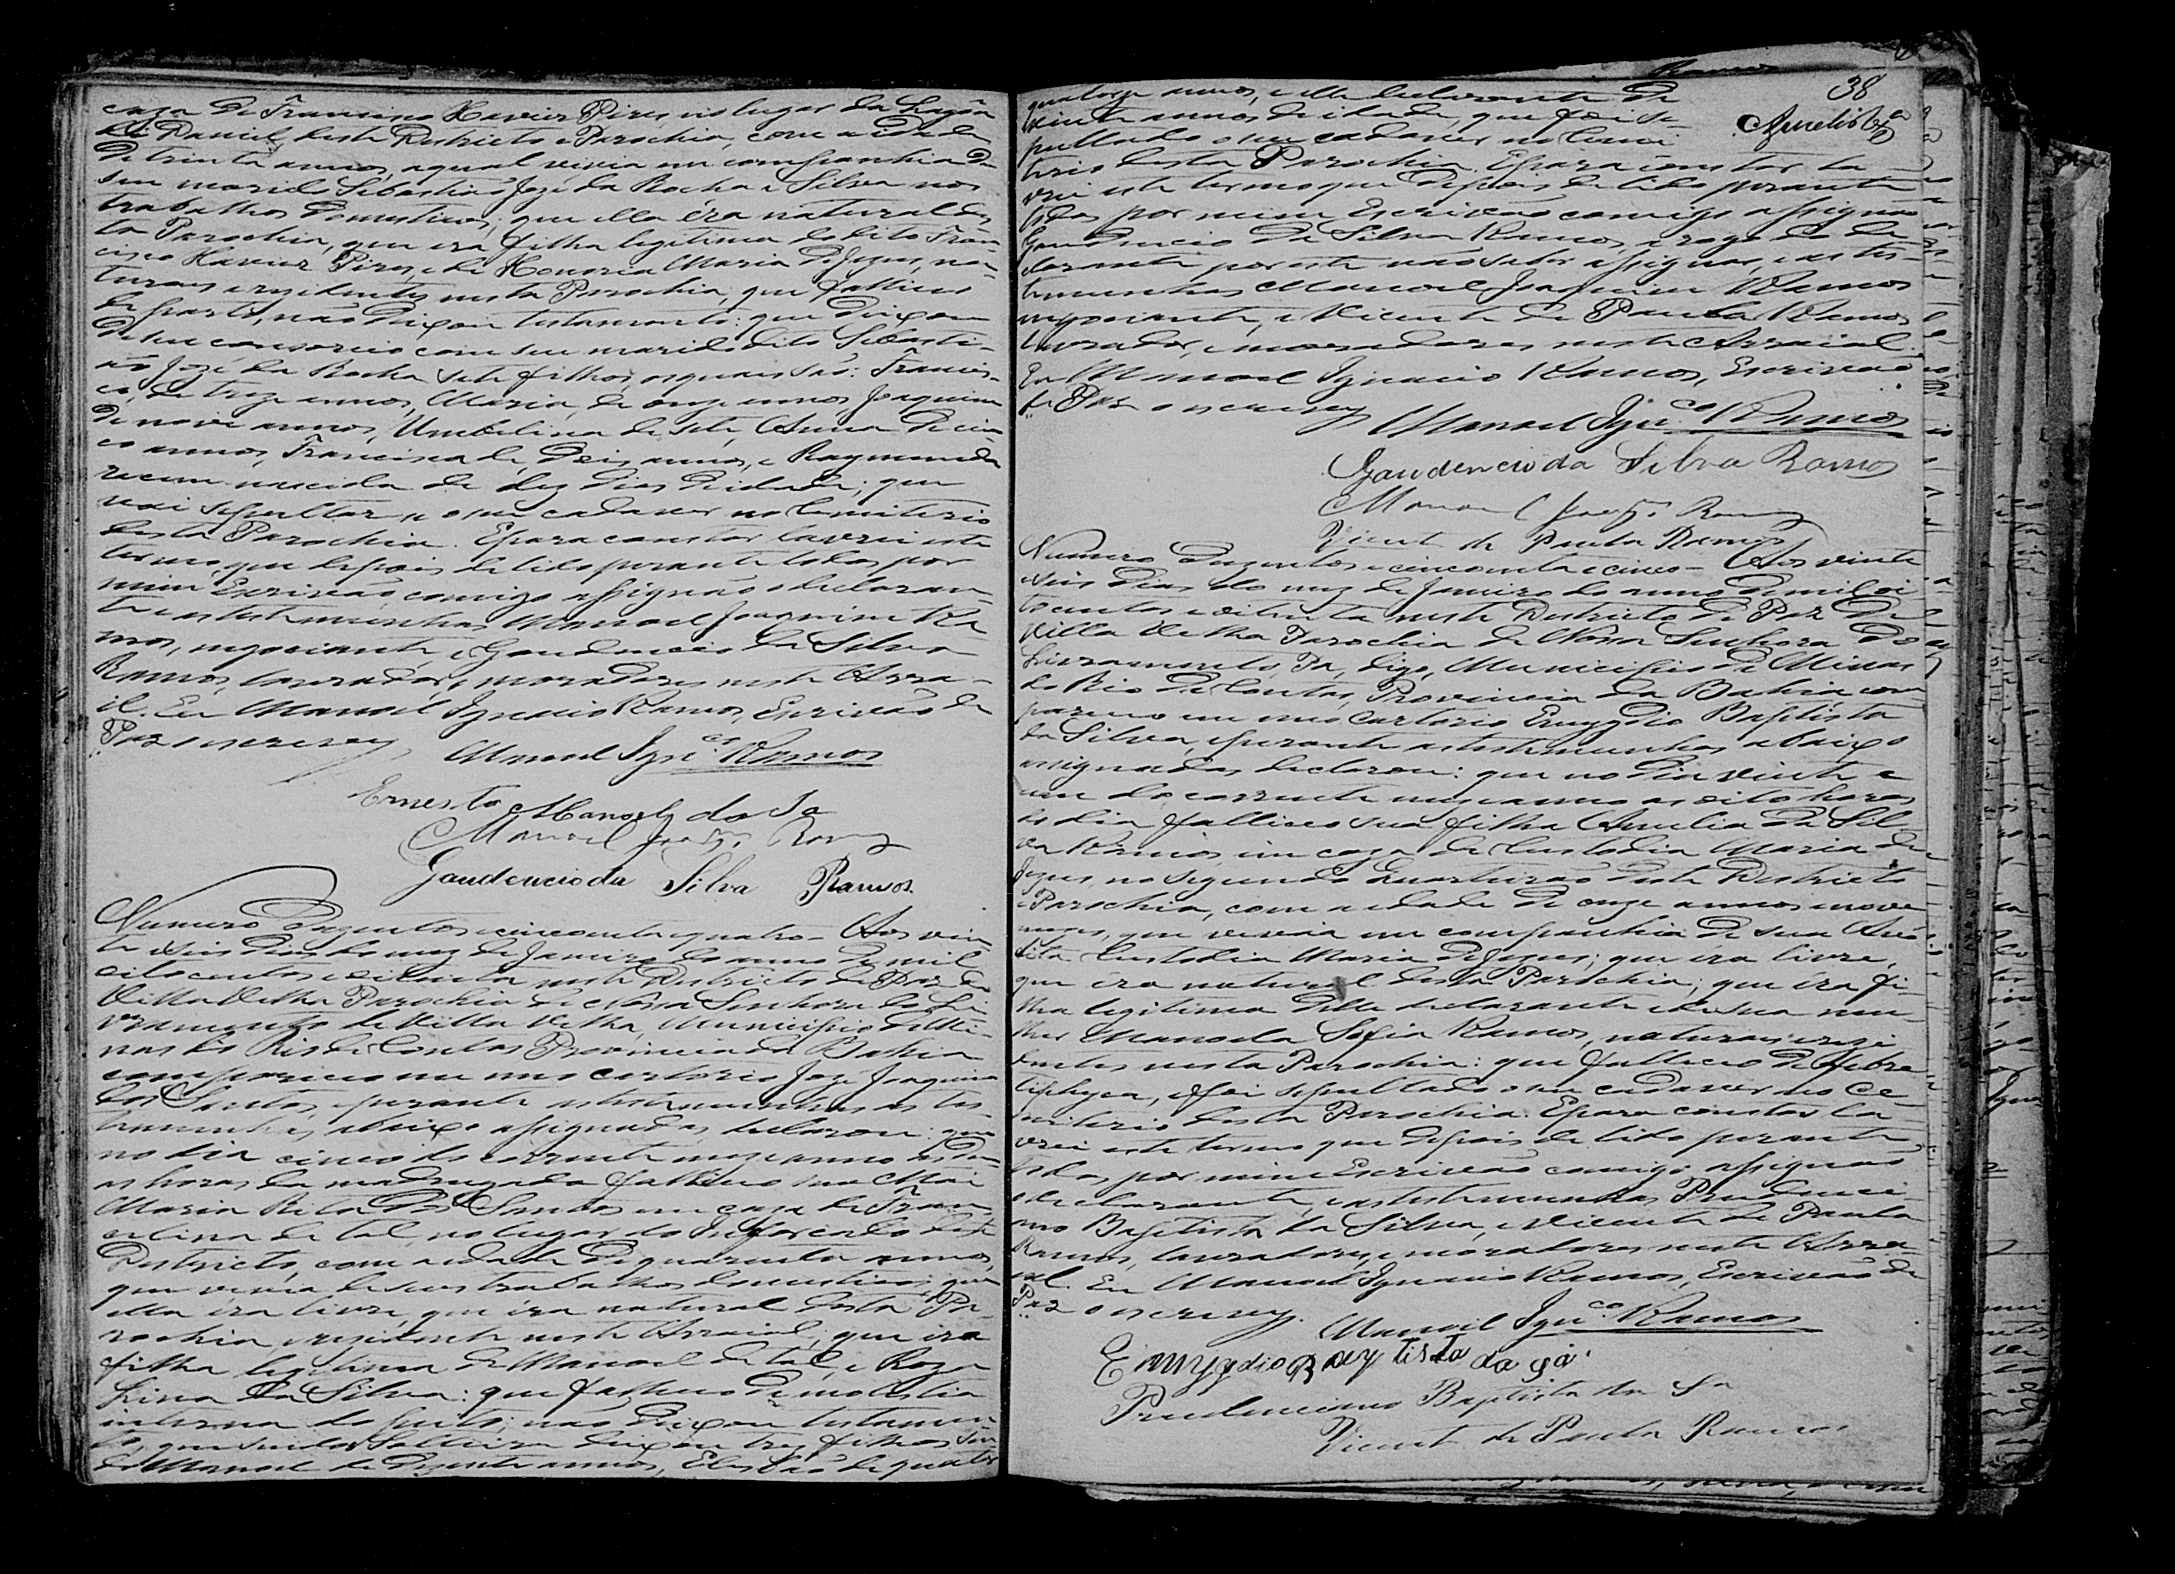 caza de Francisco Xavier Pires, no lugar da Lagôa
de Daniel, deste Destricto e Parochia, com a idade
de trinta annos, a qual vivia em companhia de
seu marido Sebastião José da Rocha e Silva nos
trabalhos domesticos; que ella éra natural des-
ta Parochia, que era filha legitima do dito Fran
cisco Xavier Pires, e de Honoria Maria de Jezus, na-
turaes e rezidentes nesta Parochia; que falleceu
de parto, não deixou testamento: que deixou
de seu consorcio com seu marido dito Sebasti-
ão José da Rocha sete filhos, os quaes são: Francis-
co, de treze annos, Maria, de onze annos, Joaquim
de nove annos, Umbelina de sete, Anna de cin-
co annos, Francisca de dois annos, e Raymunda
recem nascida de dez dias de idade; que
vai sepultar-se o seu cadaver no Cemiterio
desta Parochia. E para constar lavrei este
termo que depois de lido perante todos por
mim Escrivão comigo assignão o declaran-
te e as testemunhas Manoel Joaquim Ra
mos, negociante, e Gaudencio da Silva
Ramos, lavrador, e moradores neste Arra-
il. Eu Manoel Ignacio Ramos, Escrivão de
Paz o escrevy
Manoel Ignco Ramos
Ernesto Manoel da Sa
Manoel Joaqm Ramos
Gaudencio da Silva Ramos
Numero Duzentos e cincoenta e quatro - Aos vin
te e seis dias do mez de Janeiro do anno de mil
oito centos e oitenta neste Destricto de Paz da
Villa Velha Parochia de Nossa Senhora do Li
vramento de Villa Velha, Municipio de Mi-
nas do Rio de Contas Provincia da Bahia
compareceo em meu cartorio José Joaquim
dos Santos, e perante as testemunhas as tes-
temunhas abaixo assignadas, declarou: que
no dia cinco do corrente mez e anno as du-
as horas da madrugada falleceo sua Mãi
Maria Rita dos Santos em caza de Fran
celina de tal, no lugar do Inforcado deste
Destricto, com a idade de quarenta annos,
que vivia de seus trabalhos domesticos; que
ella éra livre, que éra natural desta Pa-
rochia, e rezidente neste Arraial; que éra
filha legitima de Manoel de tal, e Roza
Lina da Silva: que falleceo de molestia
interna do peito; não deixou testamen
to, que sendo Solteira deixou trez filhos sen
do Manoel de dezoito annos, Elesbão de quator
38
Aurelio
quatorze annos, e elle declarante de
vinte annos de idade, que foi se-
pultado o seu cadaver no Cemi
terio desta Parochia. E para constar la
vrei este termo que depois de lido perante
todos por mim Escrivão comigo assignão
Gaudencio da Silva Ramos, a rogo do de
clarante por este não saber assignar, e as tes-
temunhas Manoel Joaquim Ramos
negociante, e Vicente de Paula Ramos
lavrador, e moradores neste Arraial.
Eu Manoel Ignacio Ramos, Escrivão
de Paz o escrevy
Manoel Ignco Ramos
Gaudencio da Silva Ramos
Manoel Joaqm Ramos
Vicente de Paula Ramos
Numero Duzentos e cincoenta e cinco - Aos vinte
e seis dias do mez de Janeiro do anno de mil oi
to centos e oitenta neste Destricto de Paz da
Villa Velha Parochia de Nossa Senhora do
Livramento, Pa, digo, Municipio de Minas
do Rio de Contas, Provincia da Bahia com
pareceo em meu Cartorio Emygdio Baptista
da Silva, e perante as testemunhas abaixo
assignadas declarou: que no dia vinte e
um do corrente mez e anno as oito horas
do dia falleceo sua filha Amelia da Sil-
va Ramos, em caza de Custodia Maria de
Jezus, no segundo Quarteirão deste Destricto
e Parochia, com a idade de onze annos e nove
mezes, que vivia em companhia de sua Avó
dita Custodia Maria de Jezus; que éra livre,
que éra natural desta Parochia; que éra fi-
lha legitima delle declarante e de sua mu-
lher Manoela Sofia Ramos, naturaes e rezi
dentes nesta Parochia: que falleceo de febre
tiphyca, e foi sepultado o seu cadaver no Ce-
miterio desta Parochia. E para constar la
vrei este termo que depois de lido perante
todos, por mim Escrivão comigo assignão
o declarante, e as testemunhas Prudenci-
ano Baptista da Silva, e Vicente de Paula
Ramos, lavradores, e moradores neste Arra-
ial. Eu Manoel Ignacio Ramos, Escrivão de
Paz o escrevy.
Manoel Ignco Ramos
Emygdio Baptista da Sa
Prudenciano Baptista da Sa
Vicente de Paula Ramos